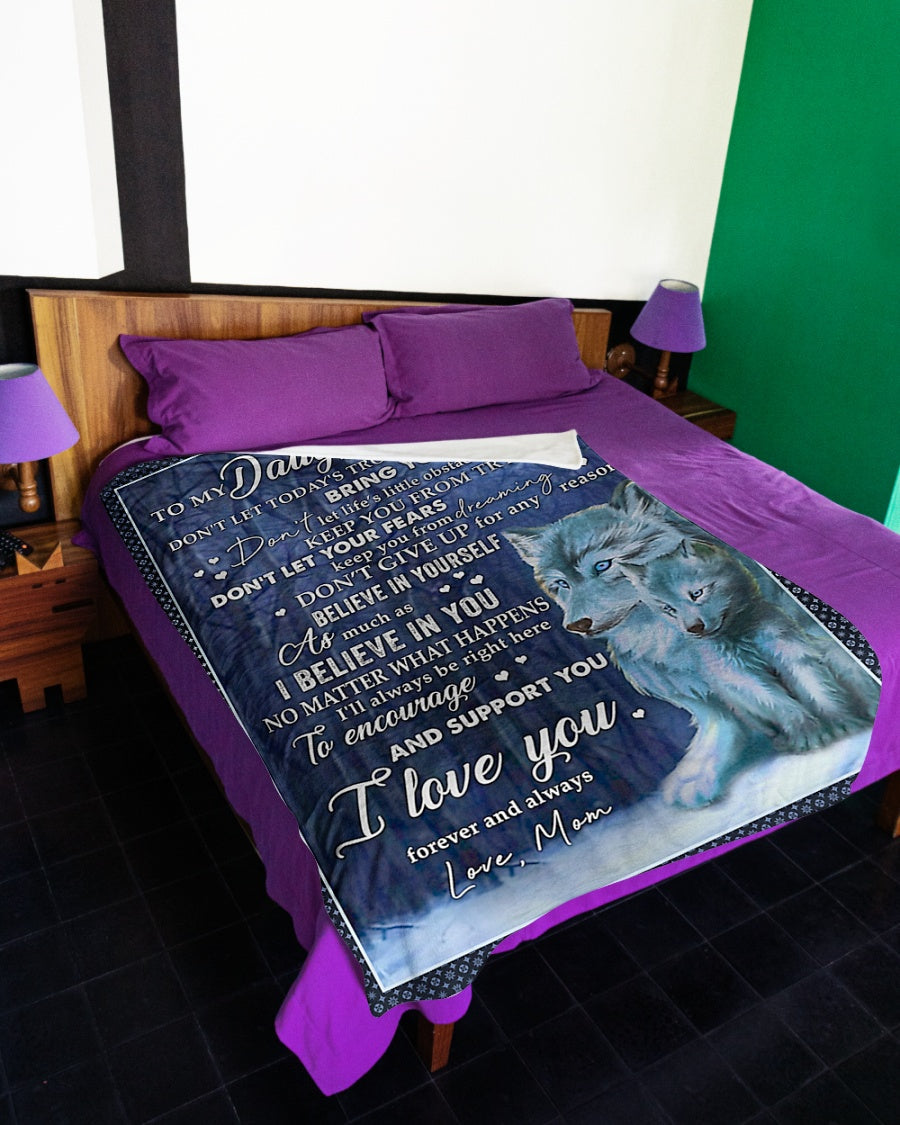 TO MY
DON'T LET TODAY'S
BRING
Don't let life's little
KEEP YOU FROM
DON'T LET YOUR FEARS
keep you from dreaming
DON'T GIVE UP for any reason
BELIEVE IN YOURSELF
As much as
I BELIEVE IN YOU
NO MATTER WHAT HAPPENS
I'll always be right here
To encourage
AND SUPPORT YOU
I love you
forever and always
Love, Mom